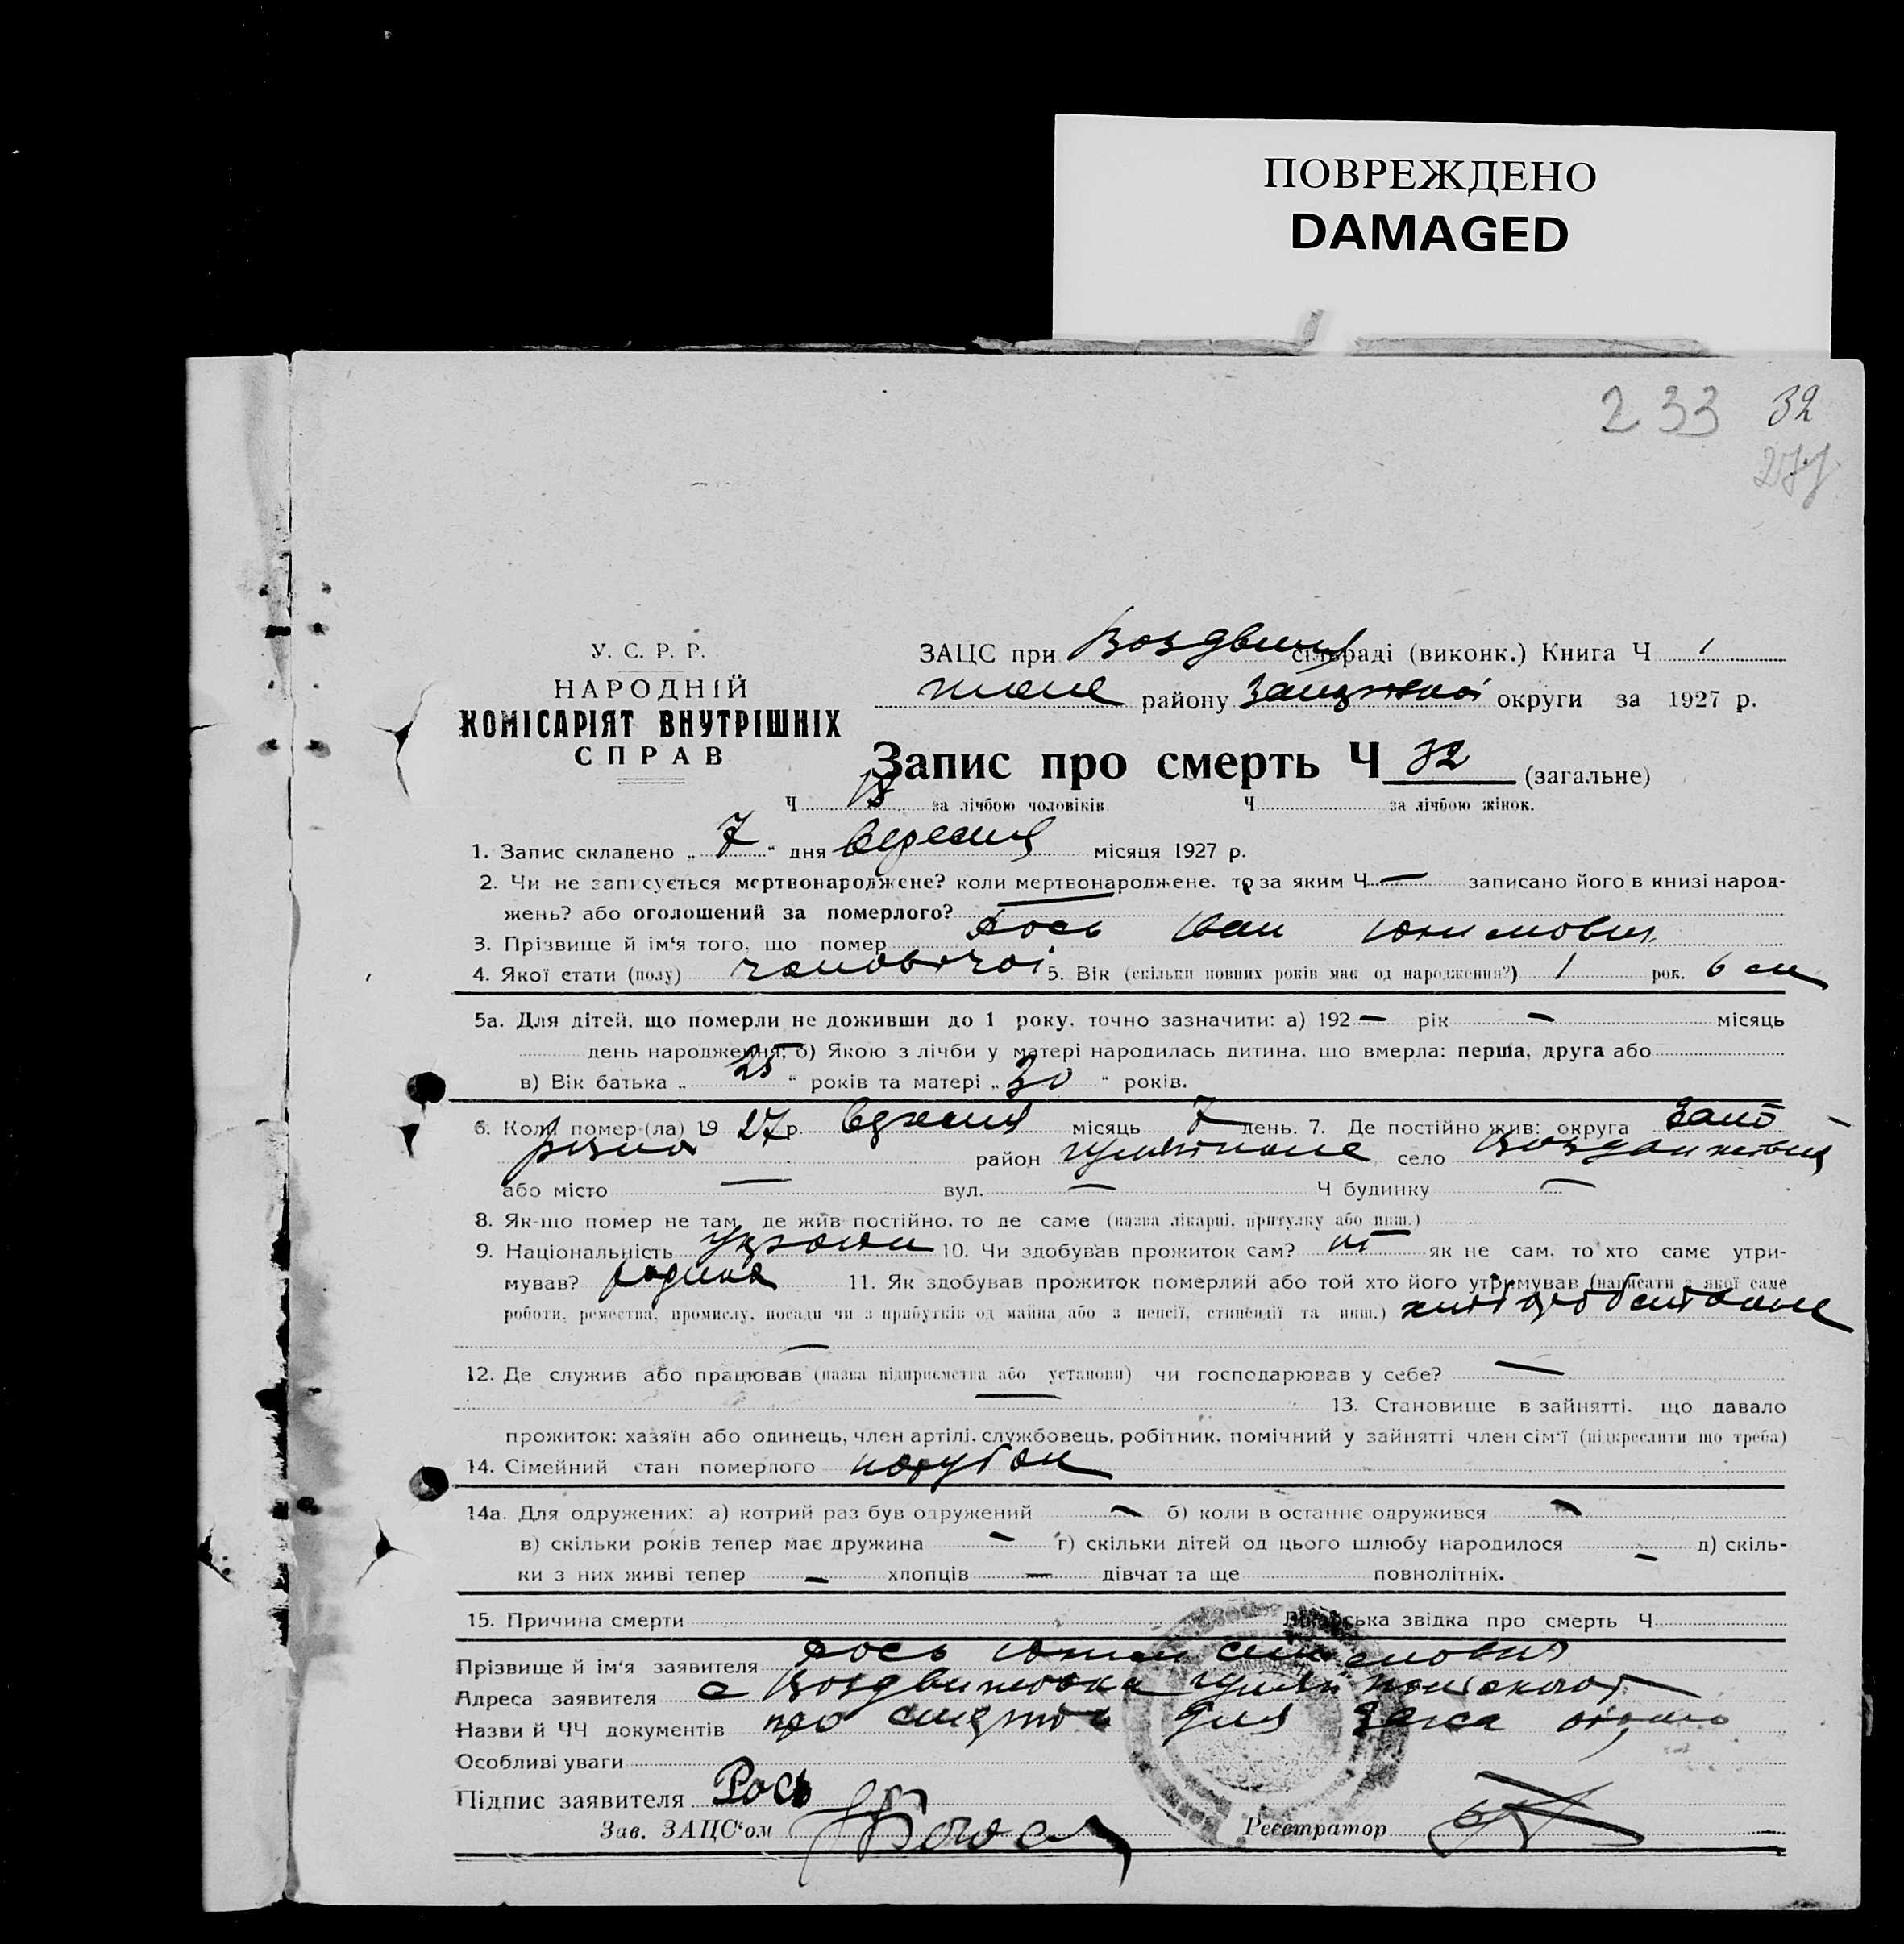 ПОВРЕЖДЕНО
DAMAGED
233 32
277
У. С. Р. Р.
НАРОДНІЙ
КОМІСАРІЯТ ВНУТРІШНІХ
СПРАВ
ЗАЦС при Воздвиж сільраді (виконк.) Книга Ч 1
району округи за 1927 р.
Запис про смерть Ч 32 (загальне)
Ч 18 за лічбою чоловіків Ч за лічбою жінок.
1. Запис складено „ 7 “ дня вересня місяця 1927 р.
2. Чи не записується мертвонароджене? коли мертвонароджене, то за яким Ч — записано його в книзі народ-
жень? або оголошений за померлого?
3. Прізвище й ім‘я того, що помер Рось Іван Юхимович
4. Якої стати (полу) чоловічої 5. Вік (скільки повних років має од народження?) 1 рок. 6 м
5а. Для дітей, що померли не доживши до 1 року, точно зазначити: а) 192 — рік — місяць
день народження; б) Якою з лічби у матері народилась дитина, що вмерла: перша, друга або
в) Вік батька „ 25 “ років та матері „ 30 “ років.
6. Коли помер (ла) 19 27 р. вересня місяць 7 день. 7. Де постійно жив: округа Запо-
ріжжа район Гуляйполе село Воздвижівка
або місто — вул. — Ч будинку —
8. Як-що помер не там, де жив постійно, то де саме (назва лікарні, притулку або инш.)
9. Національність українец 10. Чи здобував прожиток сам? ні як не сам, то хто саме утри-
мував? родина 11. Як здобував прожиток померлий або той хто його утримував (написати з якої саме
роботи, ремества, промислу, посади чи з прибутків од майна або з пенсії, стипендії та инш.)
—
12. Де служив або працював (назва підприємства або установи) чи господарював у себе? —
— 13. Становище в зайнятті, що давало
прожиток: хазяїн або одинець, член артілі, службовець, робітник, помічний у зайнятті член сім‘ї (підкреслити що треба)
14. Сімейний стан померлого
14а. Для одружених: а) котрий раз був одружений — б) коли в останнє одружився —
в) скільки років тепер має дружина — г) скільки дітей од цього шлюбу народилося — д) скіль-
ки з них живі тепер — хлопців — дівчат та ще повнолітніх.
15. Причина смерти Лікарська звідка про смерть Ч
Прізвище й ім‘я заявителя Рось Юхим
Адреса заявителя с Воздвижовка
Назви й ЧЧ документів про смерть для Загса
Особливі уваги
Підпис заявителя Рось
Зав. ЗАЦС‘ом Реєстратор